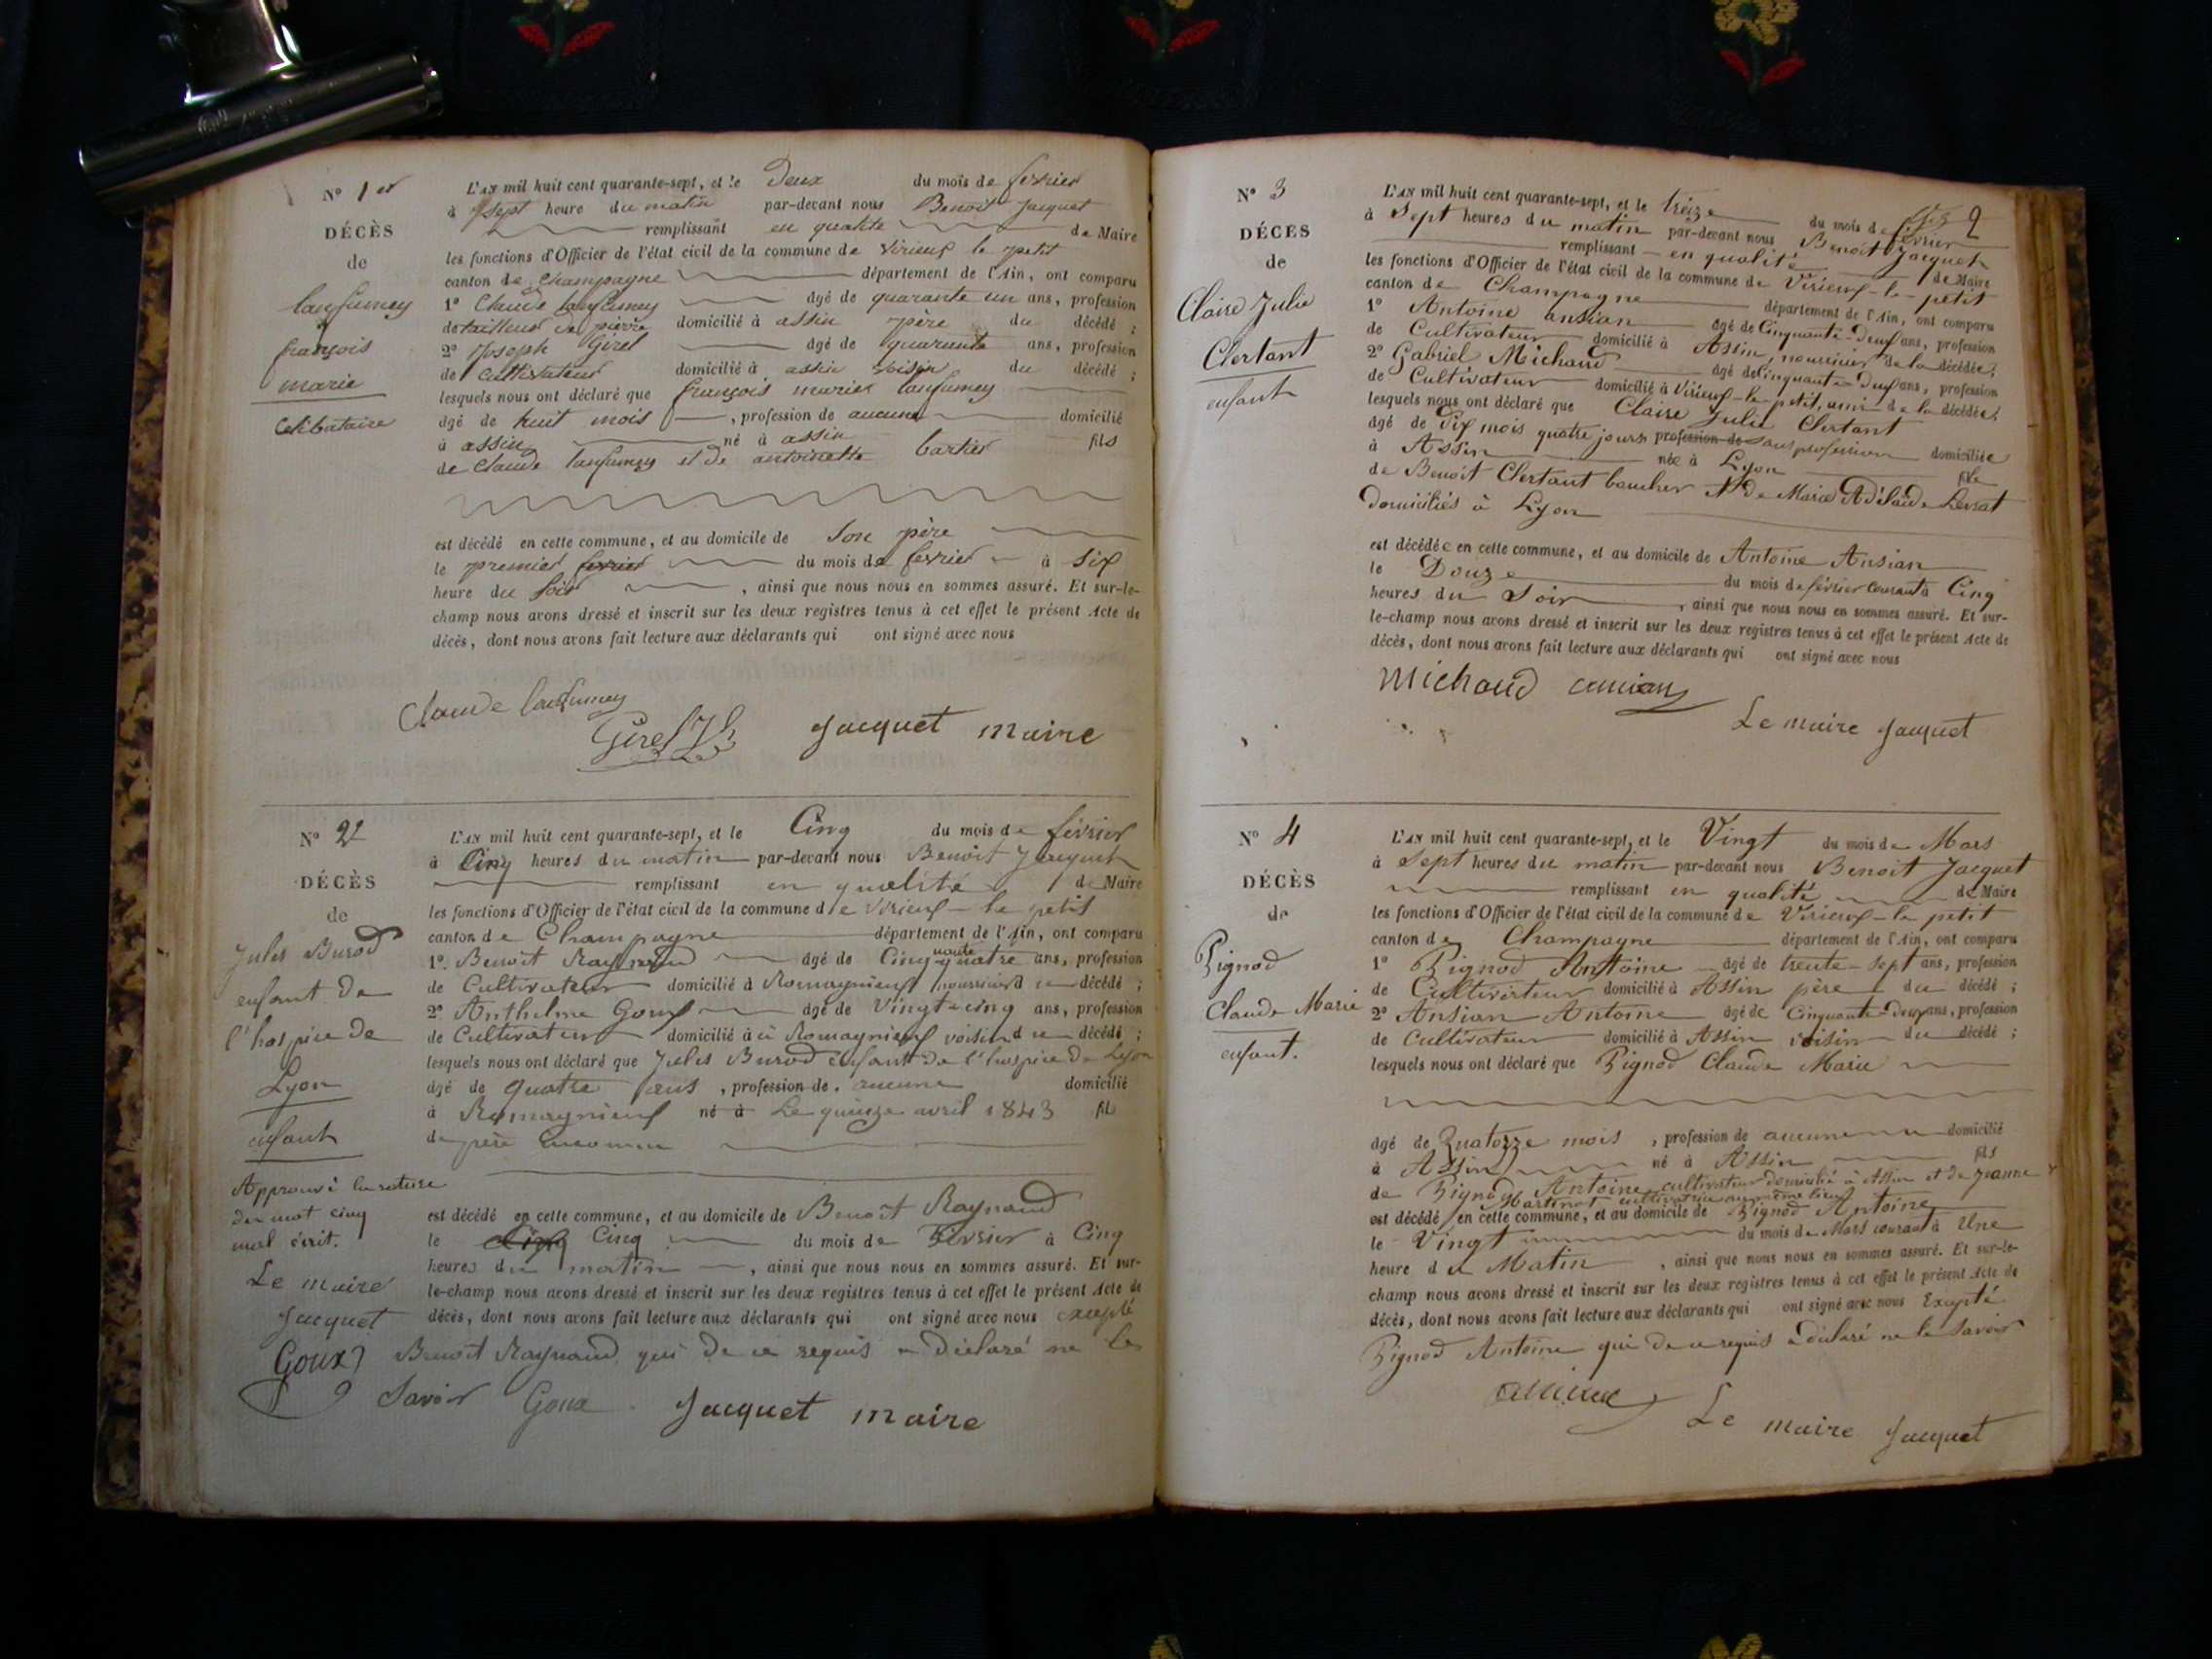 N° 1er
DÉCÈS
de
Lanfumey
françois
marie
Célibataire
L'AN mil huit cent quarante-sept, et le Deux du mois de février
à sept heure du matin par-devant nous Benoit Jacquet
remplissant en qualité de Maire
les fonctions d'Officier de l'état civil de la commune de virieux le petit
canton de Champagne département de l'Ain, ont comparu
1° Claude Lanfumey âgé de quarante un ans, profession
de tailleur de pierre domicilié à assin père du décédé ;
2° Joseph Girel âgé de quarante ans, profession
de Cultivateur domicilié à assin voisin du décédé ;
lesquels nous ont déclaré que françois marie Lanfumey
âgé de huit mois , profession de aucune domicilié
à assin né à assin fils
de Claude Lanfumey et de antoinette bartier
est décédé en cette commune, et au domicile de son père
le premier février du mois de fevrier à six
heure du soir , ainsi que nous nous en sommes assuré. Et sur-le-
champ nous avons dressé et inscrit sur les deux registres tenus à cet effet le présent Acte de
décès, dont nous avons fait lecture aux déclarants qui ont signé avec nous
Claude Lanfumey
Girel Jh Jacquet maire
N° 2
DÉCÈS
de
Jules Burod
enfant de
l'hospice de
Lyon
enfant
Approuvé la rature
du mot cinq
mal écrit.
Le maire
Jacquet
Goux
L'AN mil huit cent quarante-sept, et le Cinq du mois de février
à Cinq heures du matin par-devant nous Benoit Jacquet
remplissant en qualité de Maire
les fonctions d'Officier de l'état civil de la commune de virieux-le petit
canton de Champagne département de l'Ain, ont comparu
1° Benoît Raynaud âgé de Cinquante quatre ans, profession
de Cultivateur domicilié à Romagnieux nourricier du décédé ;
2° Anthelme Goux âgé de Vingt-cinq ans, profession
de Cultivateur domicilié à à Romagnieux voisin du décédé ;
lesquels nous ont déclaré que Jules Burod enfant de l'hospice de Lyon
âgé de quatre ans , profession de aucune domicilié
à Romagnieux né à Le quinze avril 1843 fils
de père inconnu
est décédé en cette commune, et au domicile de Benoît Raynaud
le Cinq Cinq du mois de Février à Cinq
heures du matin , ainsi que nous nous en sommes assuré. Et sur-
le-champ nous avons dressé et inscrit sur les deux registres tenus à cet effet le présent Acte de
décès, dont nous avons fait lecture aux déclarants qui ont signé avec nous excepté
Benoît Raynaud qui de ce requis a déclaré ne le
savoir Goux Jacquet maire
2
N° 3
DÉCÈS
de
Claire Julie
Chertant
enfant
L'AN mil huit cent quarante-sept, et le treize du mois de février
à Sept heures du matin par-devant nous Benoît Jacquet
remplissant en qualité de Maire
les fonctions d'Officier de l'état civil de la commune de Virieux-le-petit
canton de Champagne département de l'Ain, ont comparu
1° Antoine ansian âgé de Cinquante-Deux ans, profession
de Cultivateur domicilié à Assin, nourricier de la décédée ;
2° Gabriel Michaud âgé de Cinquante-deux ans, profession
de Cultivateur domicilié à Virieux-le-petit, ami de la décédée ;
lesquels nous ont déclaré que Claire Julie Chertant
âgé de Dix mois quatre jours profession de sans profession domiciliée
à Assin née à Lyon fille
de Benoît Chertant boucher et de Marie Adélaïde Levrat
domiciliés à Lyon
est décédée en cette commune, et au domicile de Antoine Ansian
le Douze du mois de février courant à Cinq
heures du Soir , ainsi que nous nous en sommes assuré. Et sur-
le-champ nous avons dressé et inscrit sur les deux registres tenus à cet effet le présent Acte de
décès, dont nous avons fait lecture aux déclarants qui ont signé avec nous
Michaud
Le maire Jacquet
N° 4
DÉCÈS
de
Pignod
Claude Marie
enfant.
L'AN mil huit cent quarante-sept, et le Vingt du mois de Mars
à Sept heures du matin par-devant nous Benoit Jacquet
remplissant en qualité de Maire
les fonctions d'Officier de l'état civil de la commune de Virieux-le petit
canton de Champagne département de l'Ain, ont comparu
1° Pignod Antoine âgé de trente-sept ans, profession
de Cultivateur domicilié à Assin père du décédé ;
2° Ansian Antoine âgé de Cinquante-deux ans, profession
de Cultivateur domicilié à Assin voisin du décédé ;
lesquels nous ont déclaré que Pignod Claude Marie
âgé de Quatorze mois , profession de aucune domicilié
à Assin né à Assin fils
de Pignod Antoine cultivateur domicilié à Assin et de Jeanne
Martinot cultivatrice au même lieu
est décédé en cette commune, et au domicile de Pignod Antoine
le Vingt du mois de Mars courant à Une
heure du Matin , ainsi que nous nous en sommes assuré. Et sur-le-
champ nous avons dressé et inscrit sur les deux registres tenus à cet effet le présent Acte de
décès, dont nous avons fait lecture aux déclarants qui ont signé avec nous Excepté
Pignod Antoine qui de ce requis a déclaré ne le savoir
Le maire Jacquet